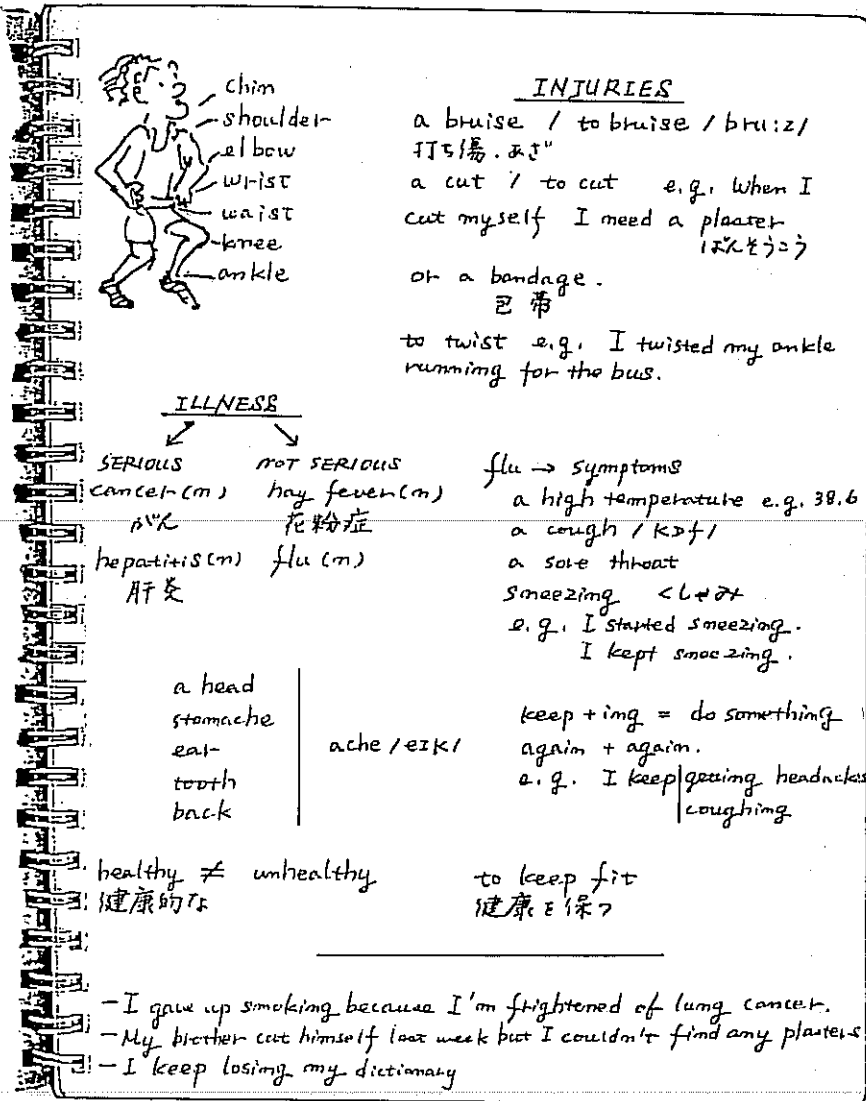 chin
shoulder
elbow
wrist
waist
knee
ankle
INJURIES
a bruise / to bruise /bru:z/
打ち傷.あざ
a cut / to cut e.g. When I
cut myself I need a plaster
ばんそうこう
or a bandage.
包帯
to twist e.g. I twisted my ankle
running for the bus.
ILLNESS
SERIOUS NOT SERIOUS
cancer(n) hay fever(n)
がん 花粉症
hepatitis(n) flu(n)
肝炎
flu → symptoms
a high temperature e.g. 38.6
a cough /kɒf/
a sore throat
sneezing くしゃみ
e.g. I started sneezing.
I kept sneezing.
a head
stomache
ear
tooth
back
ache /eIK/
keep + ing = do something
again + again.
e.g. I keep getting headaches
coughing
healthy ≠ unhealthy
健康的な
to keep fit
健康を保つ
- I gave up smoking because I'm frightened of lung cancer.
- My brother cut himself last week but I couldn't find any plasters
- I keep losing my dictionary